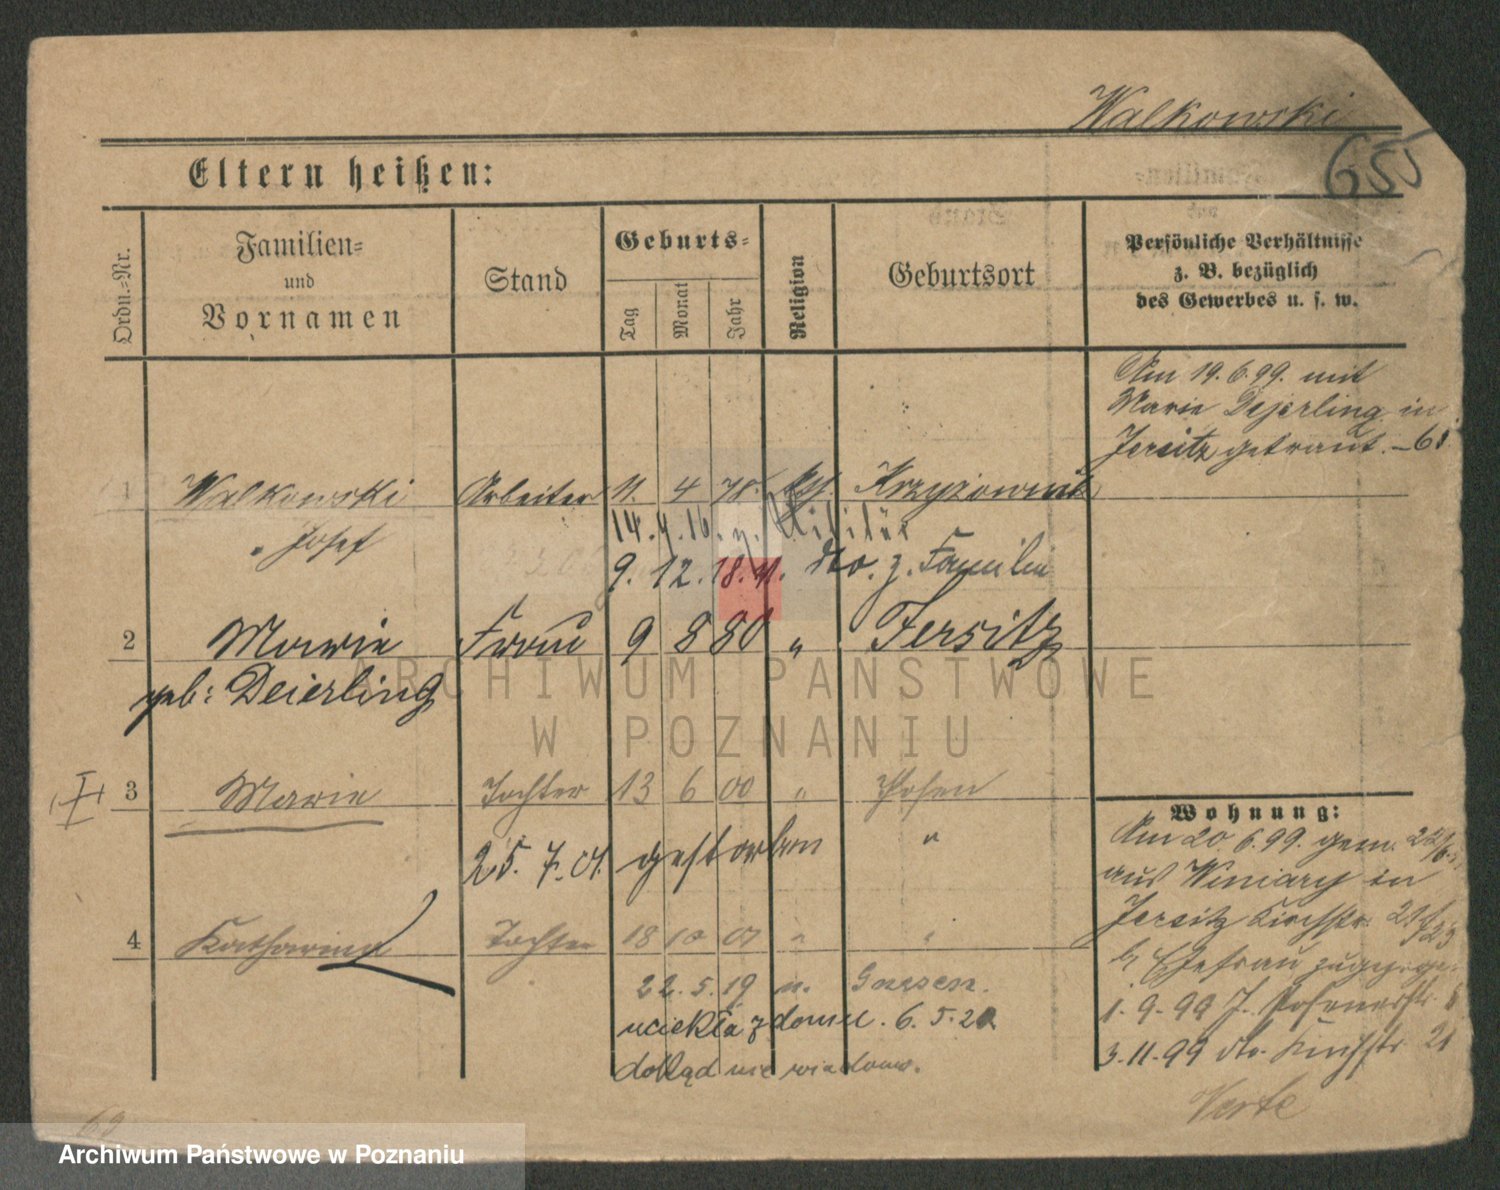 Walkowski
655
Eltern heißen:
Ordn.-Nr.
Familien-
und
Vornamen
Stand
Geburts-
Tag
Monat
Jahr
Religion
Geburtsort
Persönliche Verhältnisse
z. B. bezüglich
des Gewerbes u. s. w.
Am 19.6.99. mit
Marie Dejerling in
Jersitz getraut.
1 Walkowski Arbeiter 11. 4 78. Krzyzownik
" Josef
14.4.16. z. Militär
9.12.18. dto. z. Familie
2 Marie Frau 9 8 80 " Jersitz
geb: Deierling
3 Marie Tochter 13 6 00 " Posen
25.7.01. gestorben "
4 Katharina Tochter 18 10 01 " "
22.5.19 n. Gnesen.
uciekła z domu. 6.5.20
dokąd nie wiadomo.
Wohnung:
Am 20.6.99. gem.
aus Winiary in
Jersitz Kirchstr.
Ehefrau
1.9.99 J. Posenerstr.
3.11.99 dto. Kirchstr 21
Verte
ARCHIWUM PAŃSTWOWE
W POZNANIU
Archiwum Państwowe w Poznaniu